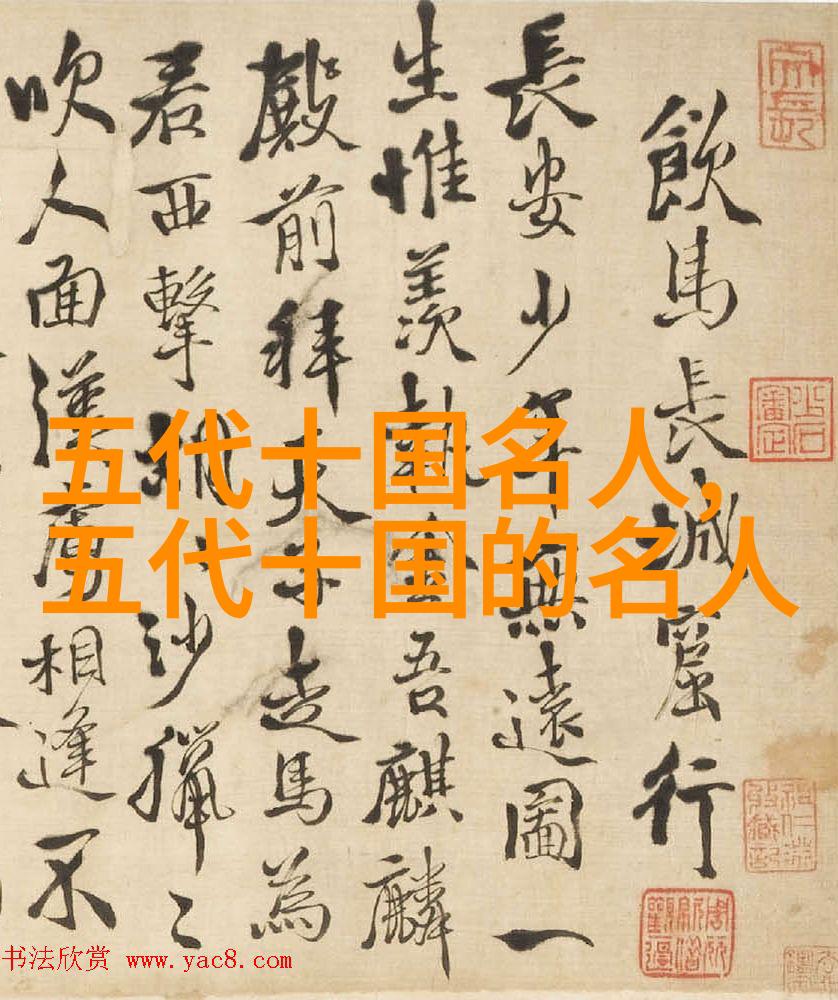 飲馬長城窟行
長安少年無遠圖一
生惟羨執金吾麒麟
殿前拜天子走馬為
君西擊胡〻沙獵〻
吹人面漢虜相逢不
五代十国名人,
五代十国的名人
书法欣赏 www.yac8.com